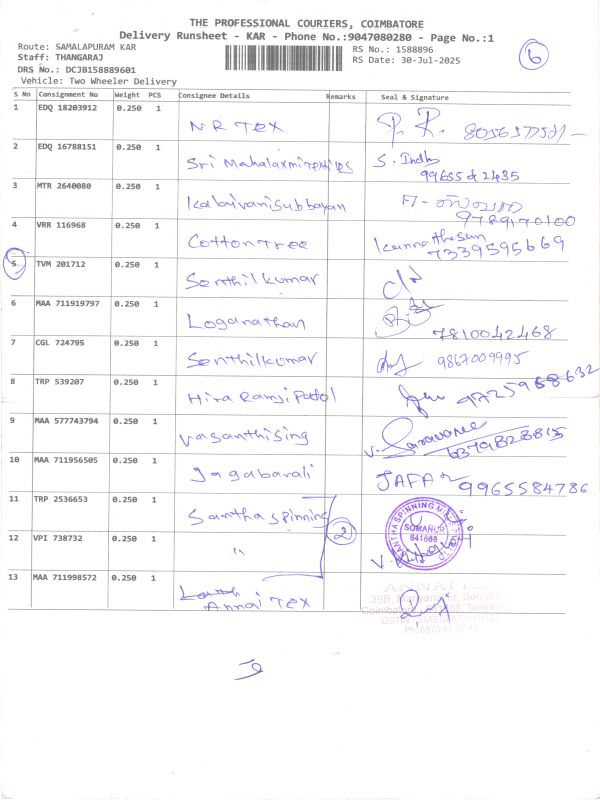 THE PROFESSIONAL COURIERS, COIMBATORE
Delivery Runsheet - KAR - Phone No.:9047080280 - Page No.:1
Route: SAMALAPURAM KAR
RS No.: 1588896
6
Staff: THANGARAJ
RS Date: 30-Jul-2025
DRS No.: DCJB158889601
Vehicle: Two Wheeler Delivery
S No Consignment No Weight PCS Consignee Details Remarks Seal & Signature
1 EDQ 18203912 0.250 1 NR TEX P. R.
2 EDQ 16788151 0.250 1 Sri Mahalaxmi S. Indhu
3 MTR 2640080 0.250 1 Kalaivanisubbayan
9789170100
4 VRR 116968 0.250 1 Cotton Tree
7339595669
5 TVM 201712 0.250 1 Senthil kumar
6 MAA 711919797 0.250 1 Loganathan
7810042468
7 CGL 724795 0.250 1 Senthilkumar 9867009995
8 TRP 539207 0.250 1 Hira Ramji
9 MAA 577743794 0.250 1 Vasanthising V. Saravanee
10 MAA 711956505 0.250 1 Jagabarali JAFAR
9965584786
11 TRP 2536653 0.250 1 Santha spinning
2
SOMANUR
641668
12 VPI 738732 0.250 1 "
13 MAA 711998572 0.250 1 Annai TEX